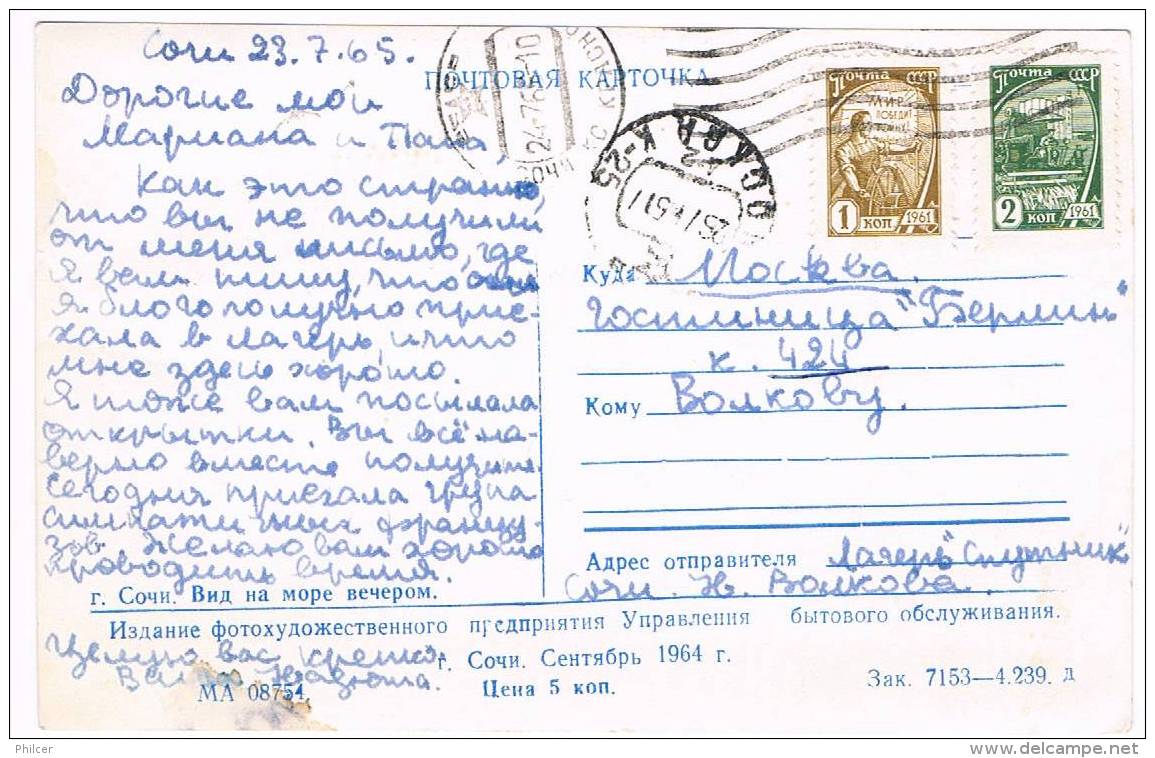 Сочи 23.7.65.
ПОЧТОВАЯ КАРТОЧКА
Дорогие мои
Мариана и Папа,
Как это странно,
что вы не получили
от меня письмо, где
я вам пишу, что
я благополучно прие-
хала в лагерь, и что
мне здесь хорошо.
Я тоже вам посылала
открытки. Вы всё на-
верно вместе получите.
Сегодня приехала група
симпатичных францу-
зов. Желаю вам хорошо
проводить время.
г. Сочи. Вид на море вечером.
Целую вас крепко.
Ваша
почта СССР
МИР
ПОБЕДИТ
ВОЙНУ!
1 коп 1961
почта СССР
2 коп 1961
24-7-65-10
МОСКВА К-25
Куда Москва.
Гостиница "Берлин"
к. 424
Кому Волкову.
Адрес отправителя Лагерь "Спутник"
Сочи. Н. Волкова.
Издание фотохудожественного предприятия Управления бытового обслуживания.
г. Сочи. Сентябрь 1964 г.
МА 08754. Цена 5 коп. Зак. 7153—4.239. д
Philcer
http://www.delcampe.net